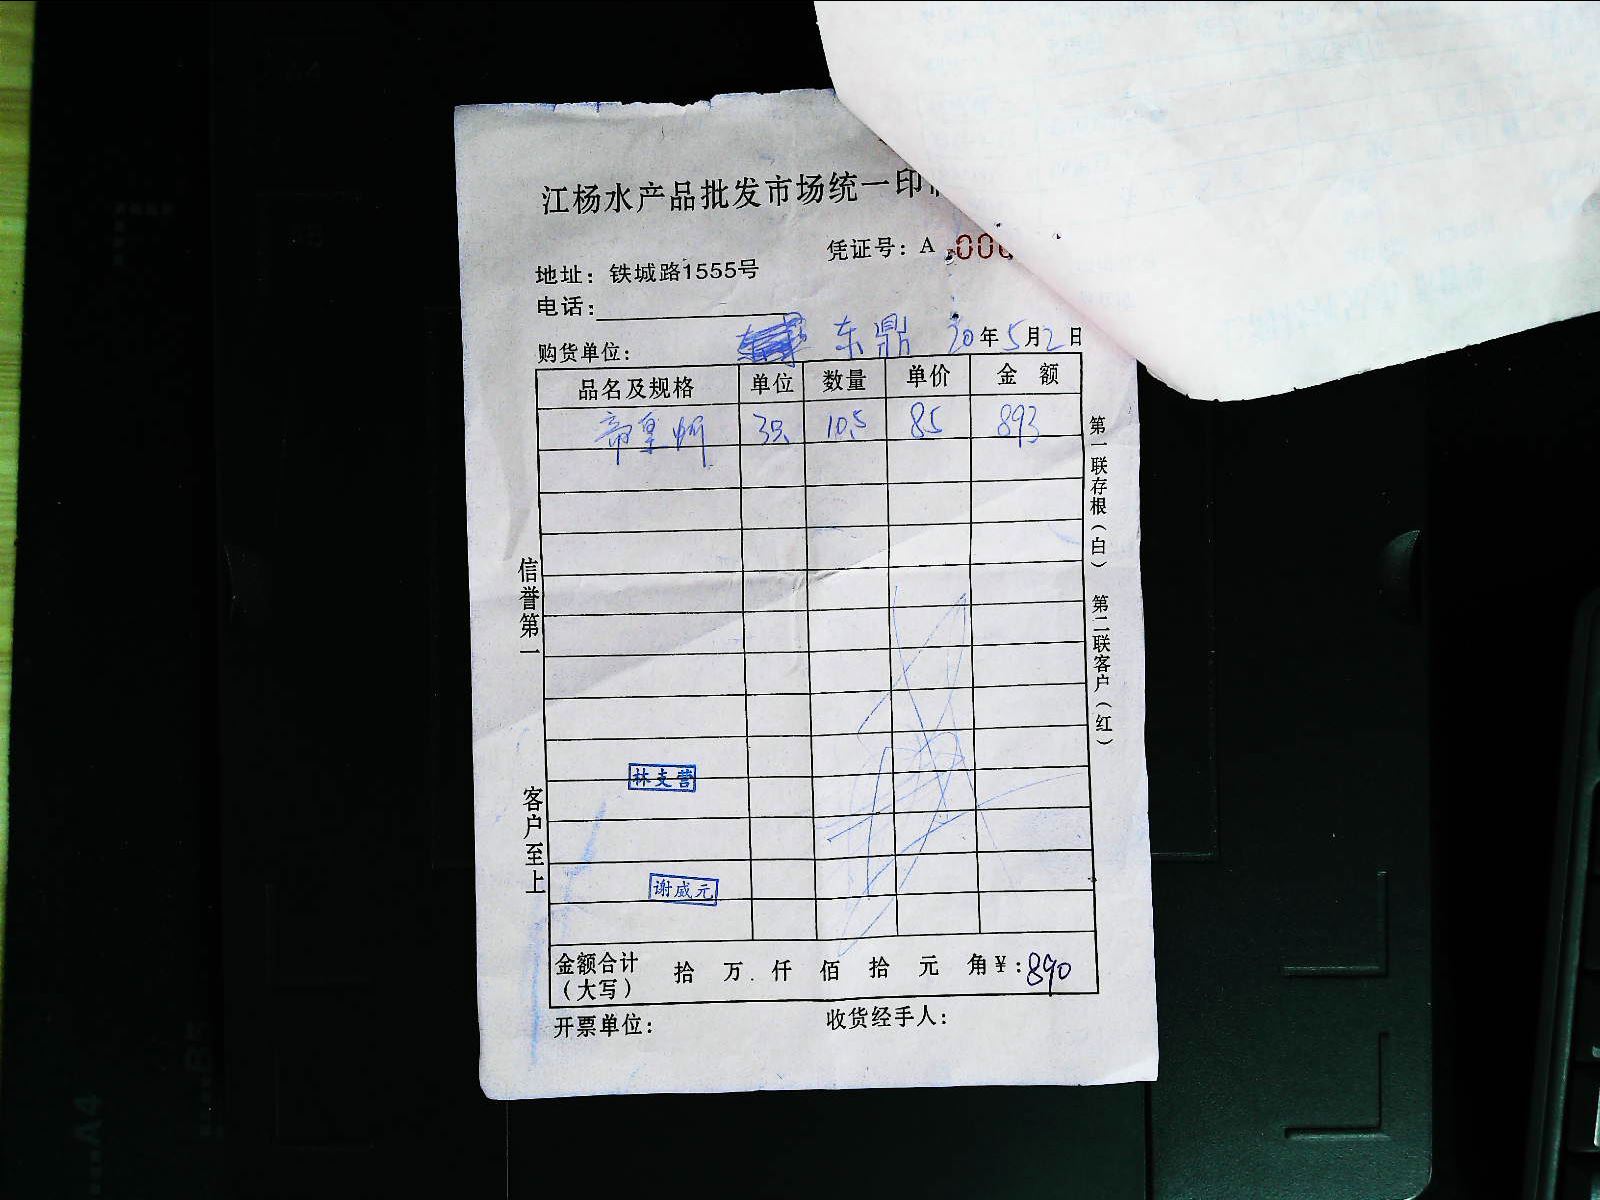 江杨水产品批发市场统一印
凭证号：A 000
地址：铁城路1555号
电话：
购货单位： 东鼎 20年5月2日
品名及规格 单位 数量 单价 金额
帝皇 3只 10.5 85 893
第一联存根（白） 第二联客户（红）
信誉第一
客户至上
林支营
谢威元
金额合计（大写） 拾 万 仟 佰 拾 元 角 ¥：890
开票单位： 收货经手人：
A4